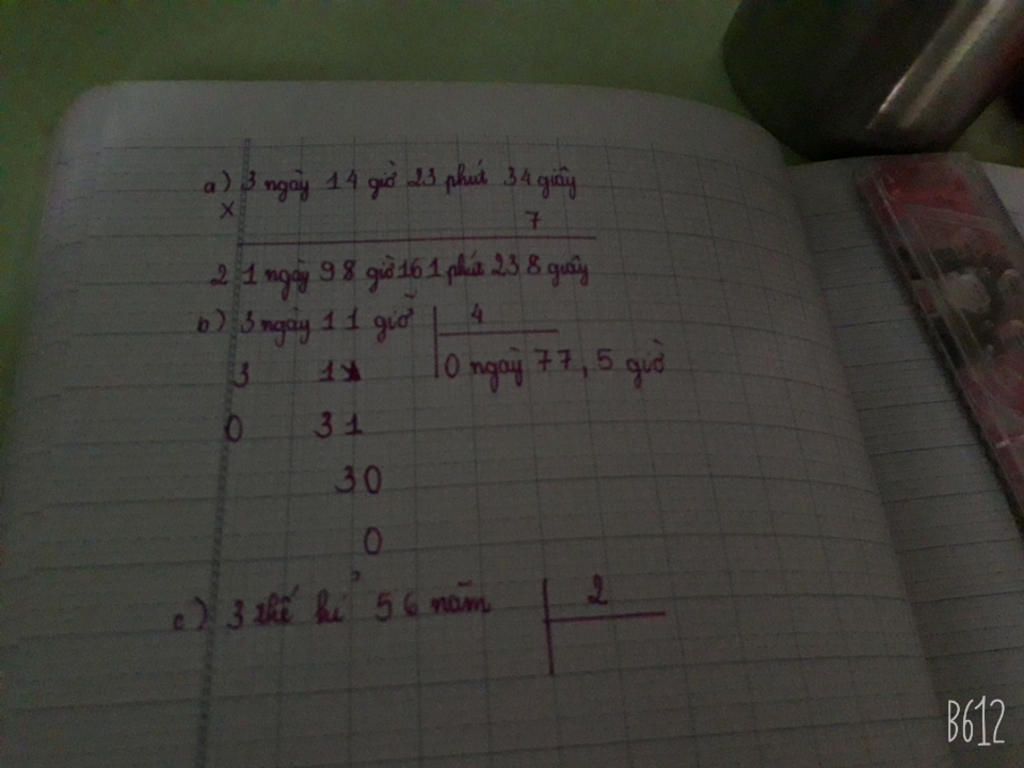 a) 3 ngày 14 giờ 23 phút 34 giây
x 7
21 ngày 98 giờ 161 phút 238 giây
b) 3 ngày 11 giờ 4
3 11 0 ngày 77,5 giờ
0 31
30
0
c) 3 thế kỉ 56 năm 2
B612